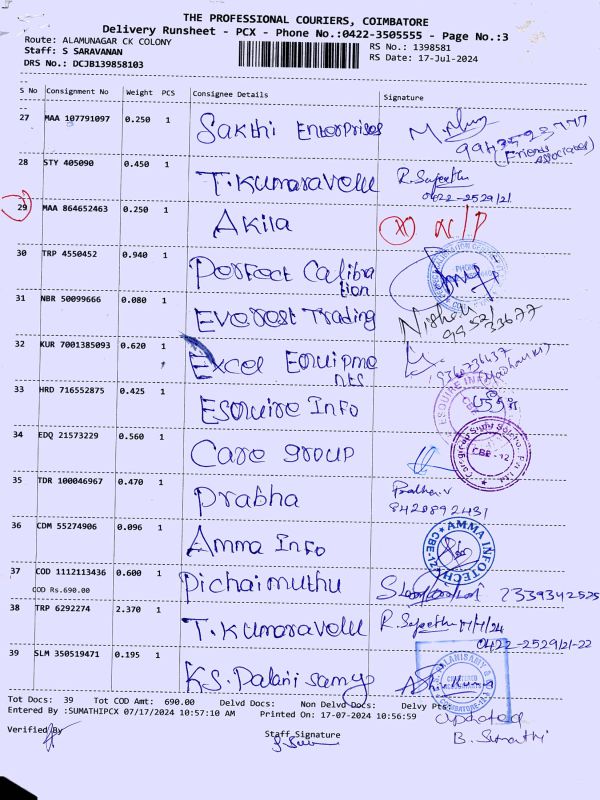 THE PROFESSIONAL COURIERS, COIMBATORE
Delivery Runsheet - PCX - Phone No.:0422-3505555 - Page No.:3
Route: ALAMUNAGAR CK COLONY
RS No.: 1398581
Staff: S SARAVANAN
RS Date: 17-Jul-2024
DRS No.: DCJB139858103
S No Consignment No Weight PCS Consignee Details Signature
27 MAA 107791097 0.250 1 Sakthi Enterprises
(Friends Associates)
28 STY 405090 0.450 1 T. Kumaravelu R. Sujeetha
0422-2529121
29 MAA 864652463 0.250 1 Akila N/P
30 TRP 4550452 0.940 1 Perfect Calibra
tion
31 NBR 50099666 0.080 1 Everest Trading
32 KUR 7001385093 0.620 1 Excel Equipme
nts
33 HRD 716552875 0.425 1 Esquire Info
ESQUIRE INFO
34 EDQ 21573229 0.560 1 Care group
CBE - 12
35 TDR 100046967 0.470 1 Prabha
8420892431
36 CDM 55274906 0.096 1 Amma Info
AMMA INFOTECH
37 COD 1112113436 0.600 1 Pichaimuthu 7339342525
COD Rs.690.00
38 TRP 6292274 2.370 1 T. Kumaravelu R. Sujeetha 17/7/24
0422-2529121-22
39 SLM 350519471 0.195 1 KS. Palani samy
Tot Docs: 39 Tot COD Amt: 690.00 Delvd Docs: Non Delvd Docs: Delvy Pts:
Entered By :SUMATHIPCX 07/17/2024 10:57:10 AM Printed On: 17-07-2024 10:56:59
updated
B. Sumathi
Verified By
Staff Signature